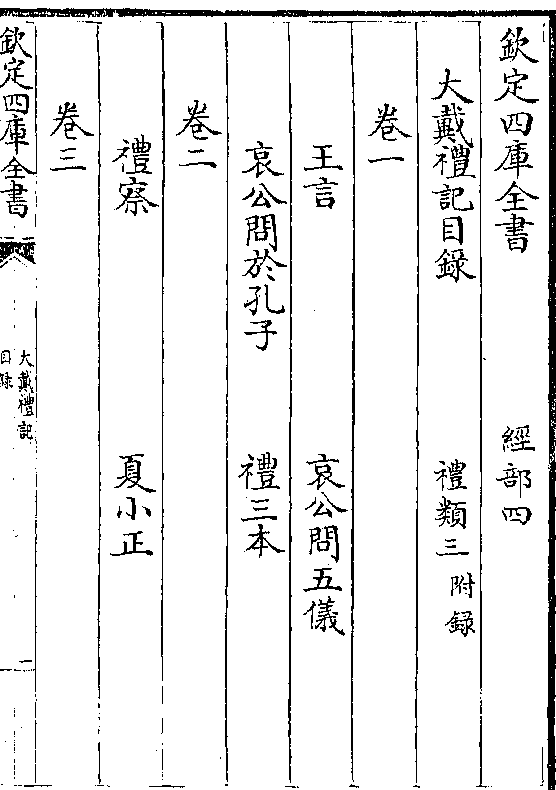 欽定四庫全書 經部四
大戴禮記目録 禮類三 附録
卷一
王言 哀公問五儀
哀公問於孔子 禮三本
卷二
禮察 夏小正
卷三
欽定四庫全書
大戴禮記
目録
一